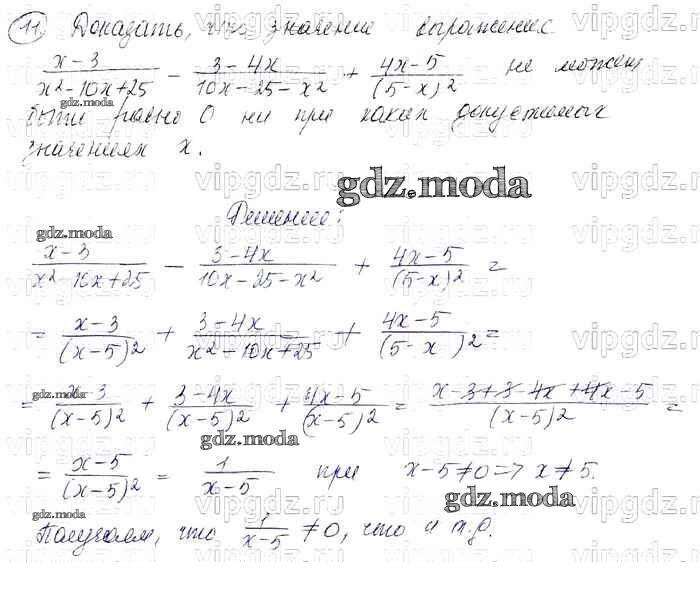 11. Доказать, что значение выражение
(x-3)/(x²-10x+25) - (3-4x)/(10x-25-x²) + (4x-5)/(5-x)² не может
быть равно 0 ни при каких допустимых
значениях x.
gdz.moda
Решение:
(x-3)/(x²-10x+25) - (3-4x)/(10x-25-x²) + (4x-5)/(5-x)² =
= (x-3)/(x-5)² + (3-4x)/(x²-10x+25) + (4x-5)/(5-x)² =
= (x-3)/(x-5)² + (3-4x)/(x-5)² + (4x-5)/(x-5)² = (x-3+3-4x+4x-5)/(x-5)² =
= (x-5)/(x-5)² = 1/(x-5) при x-5≠0 => x≠5.
Получаем, что 1/(x-5) ≠0, что и т.д.